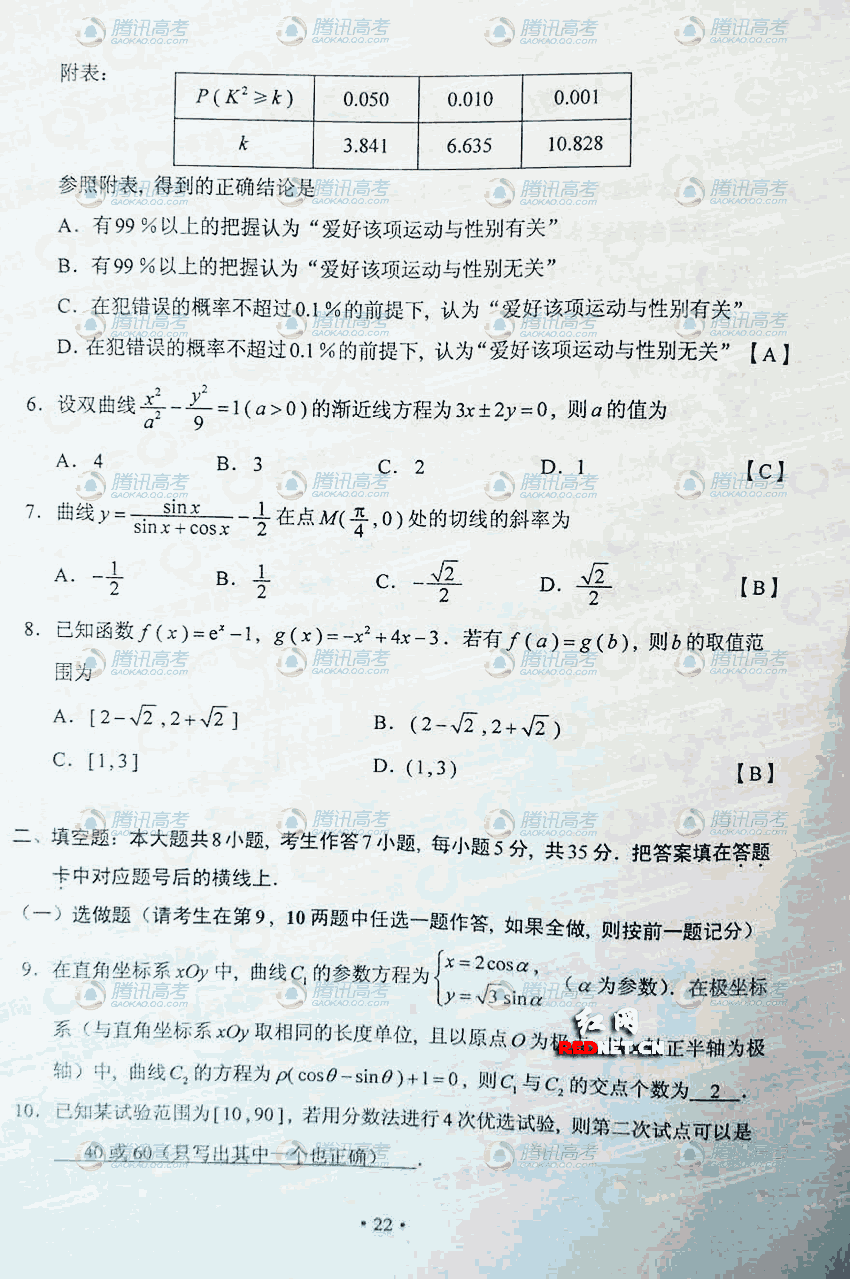 附表:
P(K²≥k) 0.050 0.010 0.001
k 3.841 6.635 10.828
参照附表, 得到的正确结论是
A. 有99%以上的把握认为“爱好该项运动与性别有关”
B. 有99%以上的把握认为“爱好该项运动与性别无关”
C. 在犯错误的概率不超过0.1%的前提下, 认为“爱好该项运动与性别有关”
D. 在犯错误的概率不超过0.1%的前提下, 认为“爱好该项运动与性别无关” 【A】
6. 设双曲线x²/a²-y²/9=1(a>0)的渐近线方程为3x±2y=0, 则a的值为
A. 4 B. 3 C. 2 D. 1 【C】
7. 曲线y=sin x/(sin x+cos x)-1/2在点M(π/4,0)处的切线的斜率为
A. -1/2 B. 1/2 C. -√2/2 D. √2/2 【B】
8. 已知函数f(x)=eˣ-1, g(x)=-x²+4x-3. 若有f(a)=g(b), 则b的取值范
围为
A. [2-√2,2+√2] B. (2-√2,2+√2)
C. [1,3] D. (1,3) 【B】
二、填空题: 本大题共8小题, 考生作答7小题, 每小题5分, 共35分. 把答案填在答题
卡中对应题号后的横线上.
(一)选做题(请考生在第9, 10两题中任选一题作答, 如果全做, 则按前一题记分)
9. 在直角坐标系xOy中, 曲线C₁的参数方程为{x=2cosα, y=√3sinα (α为参数). 在极坐标
系(与直角坐标系xOy取相同的长度单位, 且以原点O为极 正半轴为极
轴)中, 曲线C₂的方程为ρ(cosθ-sinθ)+1=0, 则C₁与C₂的交点个数为 2 .
10. 已知某试验范围为[10,90], 若用分数法进行4次优选试验, 则第二次试点可以是
40或60(只写出其中一个也正确) .
·22·
腾讯高考
GAOKAO.QQ.COM
红网
REDNET.CN